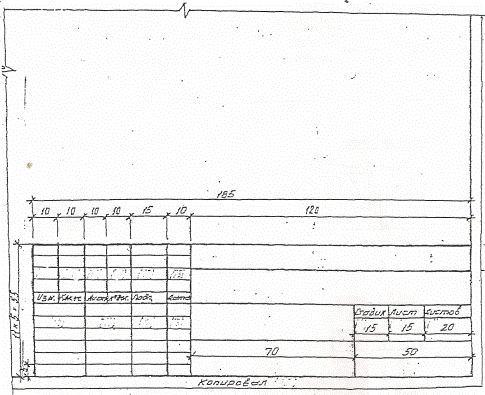 185
10 10 10 10 15 10 120
Изм. Кол.уч Лист №док. Подп. Дата
11 x 5 = 55
Стадия Лист Листов
15 15 20
70 50
5
Копировал